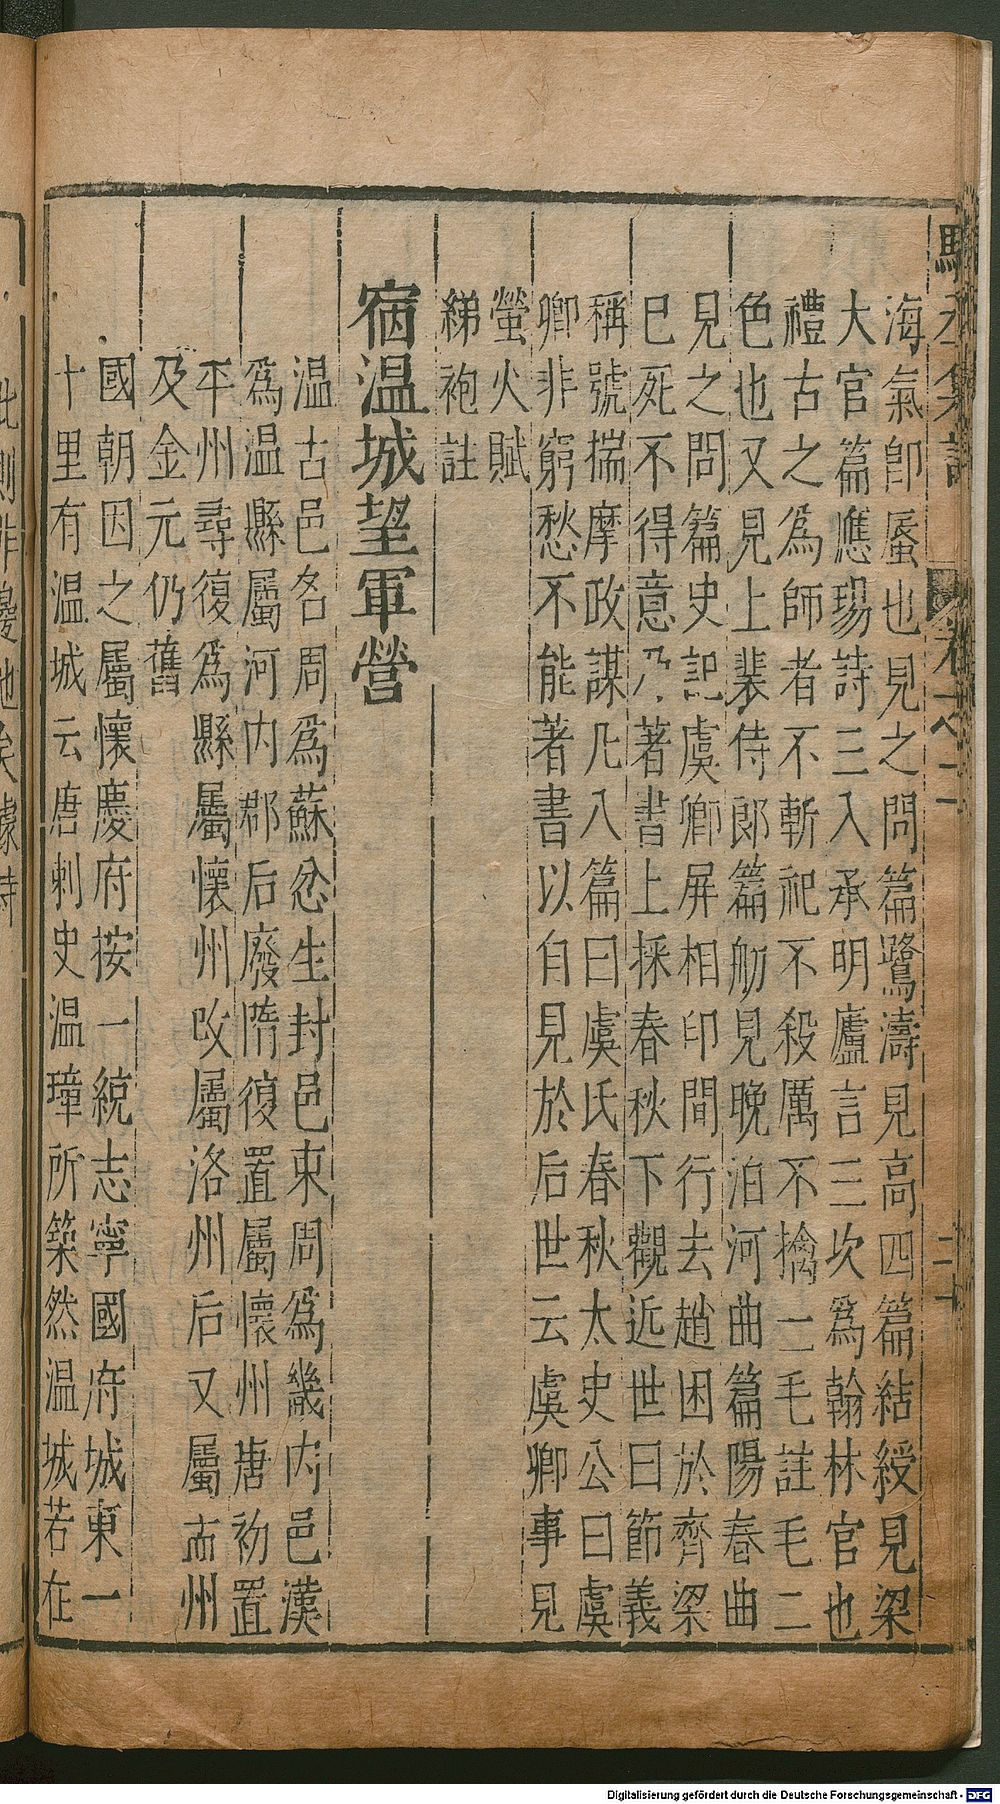 海氣卽蜃也見之問篇鷺濤見高四篇結綬見梁
大官篇應瑒詩三入承明廬言三次爲翰林官也
禮古之爲師者不斬祀不殺厲不擒二毛註毛二
色也又見上裴侍郎篇舠見晚泊河曲篇陽春曲
見之問篇史記虞卿屏相印間行去趙困於齊梁
巳死不得意乃著書上採春秋下觀近世曰節義
稱號揣摩政謀凡八篇曰虞氏春秋太史公曰虞
卿非窮愁不能著書以自見於后世云虞卿事見
螢火賦
綈袍註
宿温城望軍營
温古邑名周爲蘇忿生封邑東周爲畿内邑漢
爲温縣屬河内郡后廢隋復置屬懷州唐初置
平州尋復爲縣屬懷州改屬洛州后又屬孟州
及金元仍舊
國朝因之屬懷慶府按一統志寧國府城東一
十里有温城云唐刺史温璋所築然温城若在
駱丞集註 卷之二 二十
此則非邊地矣據詩
Digitalisierung gefördert durch die Deutsche Forschungsgemeinschaft - DFG